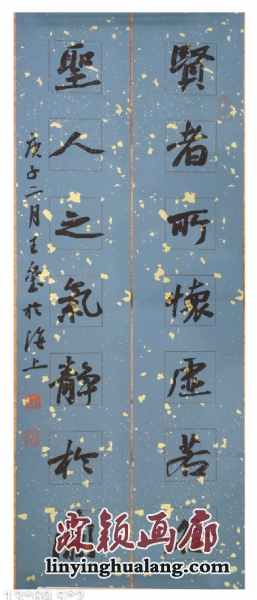 賢者所懷虛若
聖人之氣靜於
庚子二月王於海上
颖画廊
linyinghualang.com
13*69.5*2